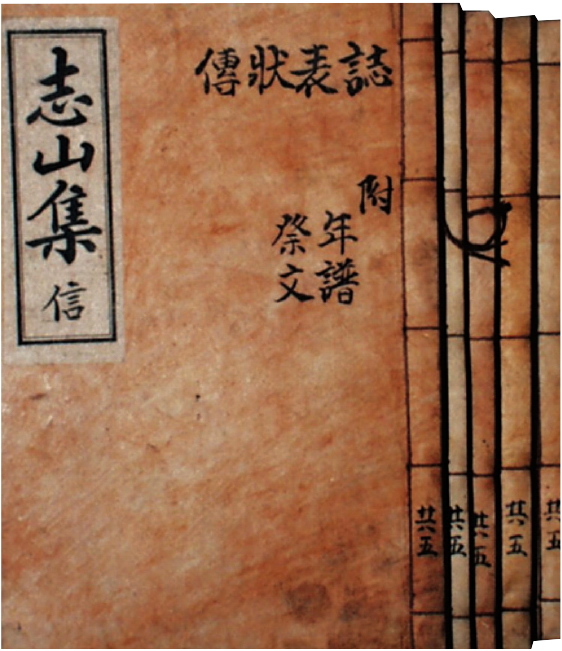 志山集
信
誌表狀傳
附
年譜
祭文
共五
共五
共五
共五
共五